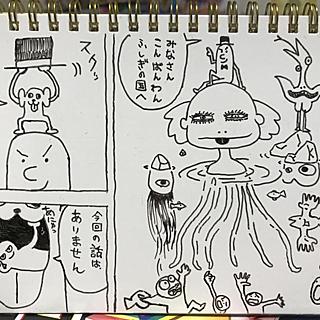 みなさん
こんばんわん
ふしぎの国へ
今回の話は、
ありません